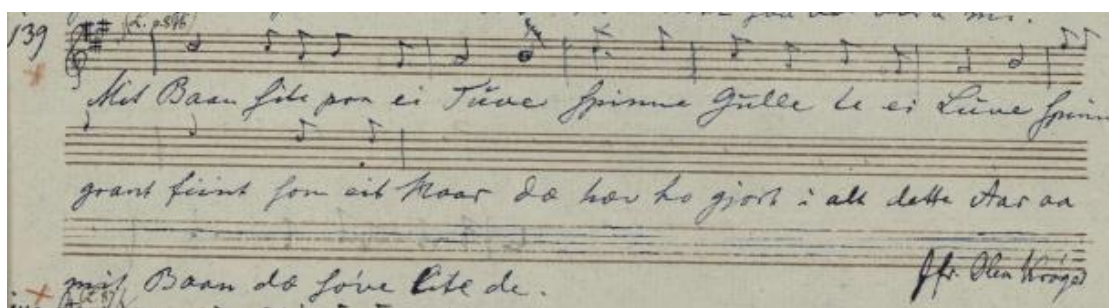 139 (L. p. 596)
Mit Baan site paa ei Tüve spinne Gülle te ei Lüve spinn
grant fiint som eit Haar dæ hæv ho gjort i alt dette Aar aa
mit Baan dæ søve lite de.
Jfr. Olea Krøger